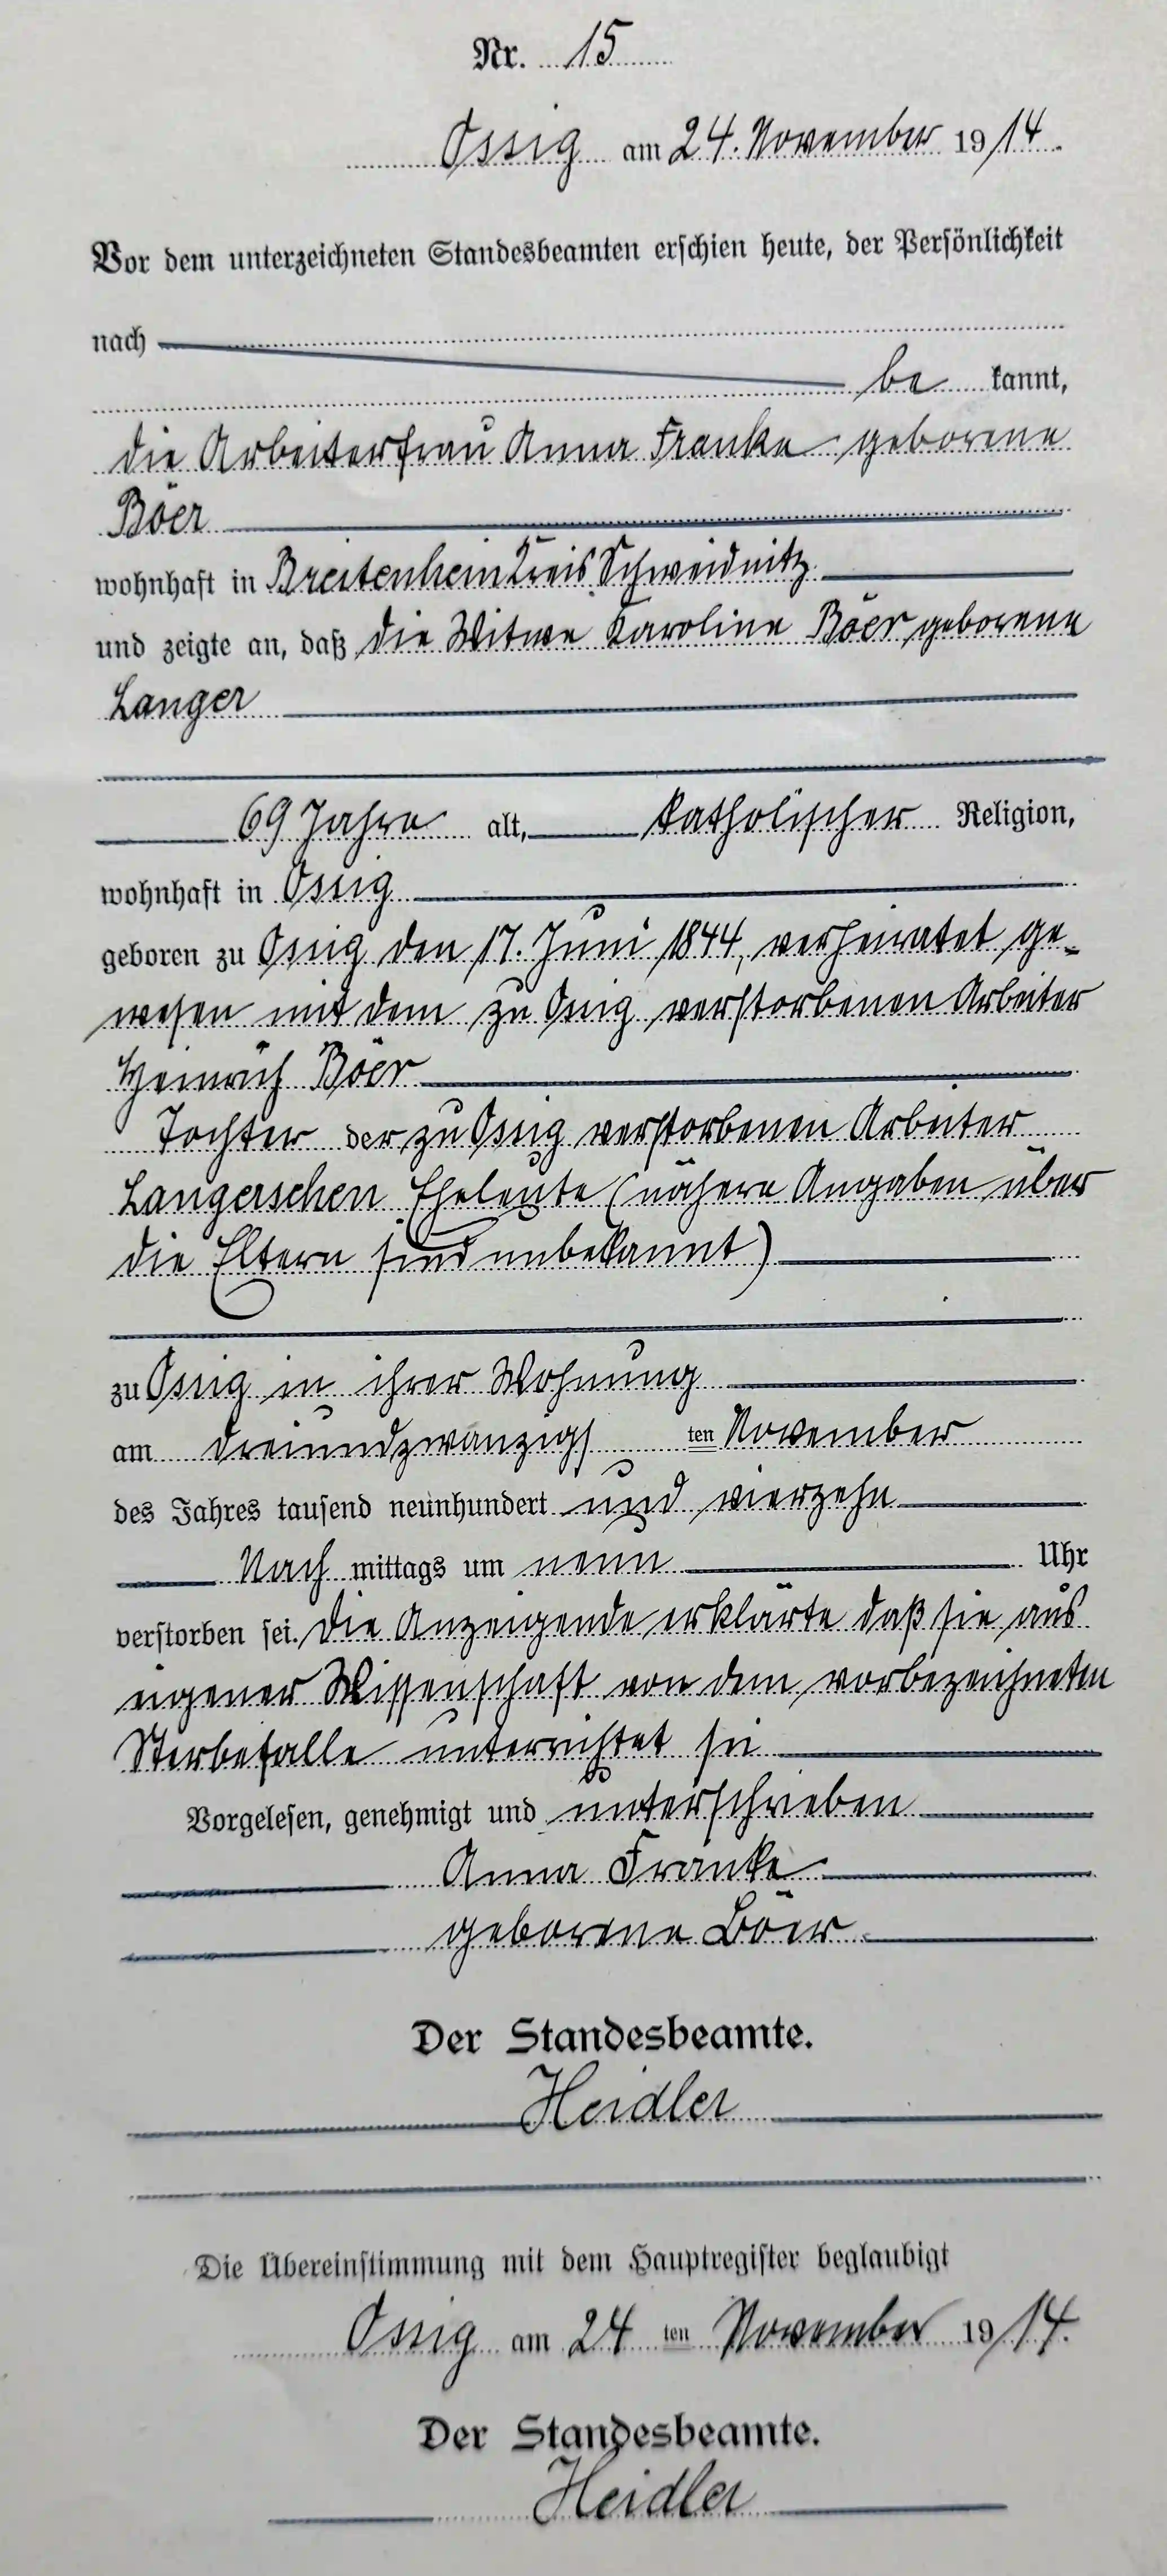 Nr. 15
Ossig am 24. November 1914.
Vor dem unterzeichneten Standesbeamten erschien heute, der Persönlichkeit
nach
be kannt,
die Arbeiterfrau Anna Franke geborene
Böer
wohnhaft in Breitenhein Kreis Schweidnitz
und zeigte an, daß die Witwe Karoline Böer geborene
Langer
69 Jahre alt, katholischer Religion,
wohnhaft in Ossig
geboren zu Ossig den 17. Juni 1844, verheiratet ge-
wesen mit dem zu Ossig verstorbenen Arbeiter
Heinrich Böer
Tochter der zu Ossig verstorbenen Arbeiter
Langerschen Eheleute (nähere Angaben über
die Eltern sind unbekannt)
zu Ossig in ihrer Wohnung
am dreiundzwanzigs ten November
des Jahres tausend neunhundert und vierzehn
Nach mittags um neun Uhr
verstorben sei. Die Anzeigende erklärte daß sie aus
eigener Wissenschaft von dem vorbezeichneten
Sterbefalle unterrichtet sei
Vorgelesen, genehmigt und unterschrieben
Anna Franke
geborene Böer
Der Standesbeamte.
Heidler
Die Übereinstimmung mit dem Hauptregister beglaubigt
Ossig am 24 ten November 1914.
Der Standesbeamte.
Heidler